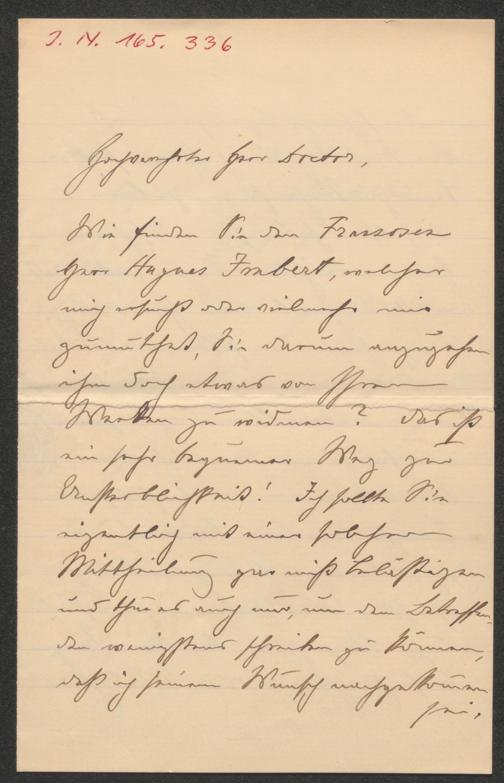 J. N. 165. 336
Hochverehrter Herr Doctor,
Wie finden Sie den Franzosen
Herr Hugues Imbert, welcher
mich ersucht oder vielmehr mir
zumuthet, Sie darum anzugehen
ihm doch etwas von Ihren
Werken zu widmen? Das ist
ein sehr bequemer Weg zur
Unsterblichkeit! Ich sollte Sie
eigentlich mit einer solchen
Mittheilung gar nicht belästigen
und thue es auch nur, um dem Betreffen-
den wenigstens schreiben zu können,
daß ich seinem Wunsch nachgekommen
sei.